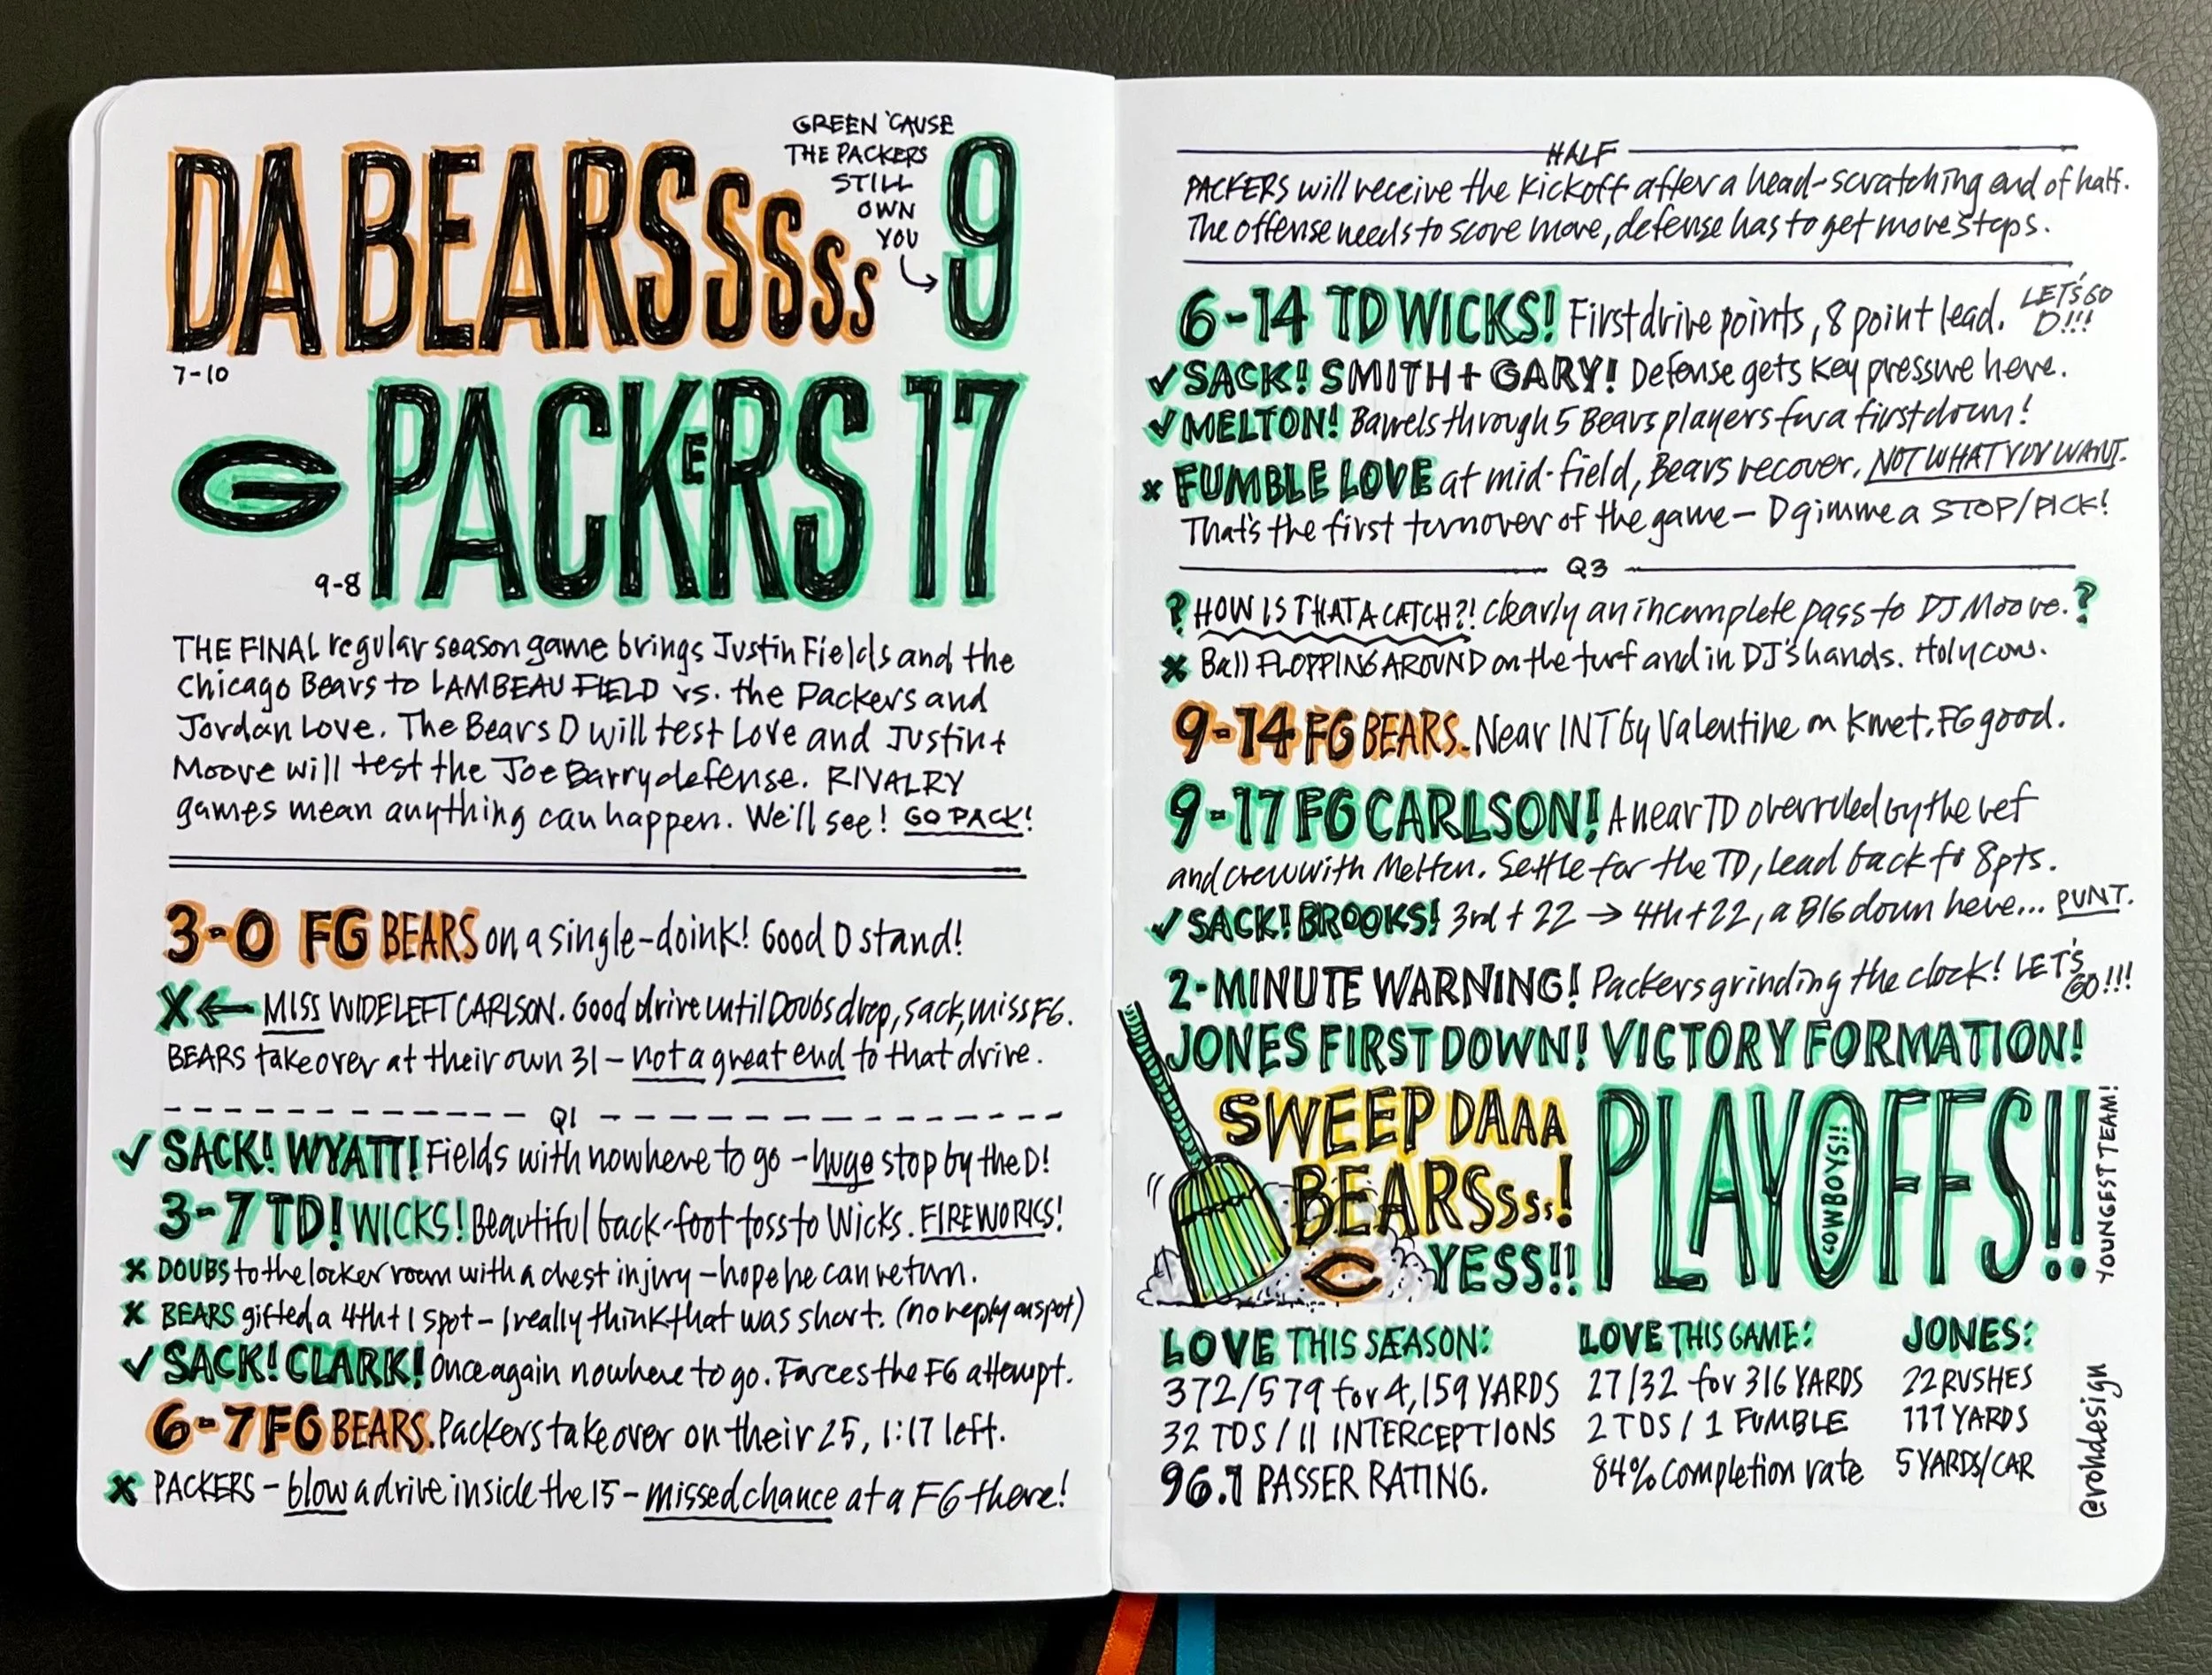 GREEN 'CAUSE
THE PACKERS
STILL
OWN
YOU
DA BEARSSSSS 9
7-10
G PACKERS 17
9-8
THE FINAL regular season game brings Justin Fields and the
Chicago Bears to LAMBEAU FIELD vs. the Packers and
Jordan Love. The Bears D will test Love and Justin +
Moore will test the Joe Barry defense. RIVALRY
games mean anything can happen. We'll see! GO PACK!
3-0 FG BEARS on a single-doink! Good D stand!
X ← MISS WIDE LEFT CARLSON. Good drive until Doubs drop, sack, miss FG.
BEARS takeover at their own 31 - not a great end to that drive.
Q1
✓ SACK! WYATT! Fields with nowhere to go - huge stop by the D!
3-7 TD! WICKS! Beautiful back-foot toss to Wicks. FIREWORKS!
x DOUBS to the locker room with a chest injury - hope he can return.
x BEARS gifted a 4th + 1 spot - I really think that was short. (no reply on spot)
✓ SACK! CLARK! Once again nowhere to go. Forces the FG attempt.
6-7 FG BEARS. Packers takeover on their 25, 1:17 left.
x PACKERS - blow a drive inside the 15 - missed chance at a FG there!
HALF
PACKERS will receive the kickoff after a head-scratching end of half.
The offense needs to score more, defense has to get more stops.
6-14 TD WICKS! First drive points, 8 point lead. LET'S GO
D!!!
✓ SACK! SMITH + GARY! Defense gets key pressure here.
✓ MELTON! Barrels through 5 Bears players for a first down!
x FUMBLE LOVE at mid-field, Bears recover. NOT WHAT YOU WANT.
That's the first turnover of the game - D gimme a STOP/PICK!
Q3
? HOW IS THAT A CATCH?! Clearly an incomplete pass to DJ Moore. ?
x Ball FLOPPING AROUND on the turf and in DJ's hands. Holy cow.
9-14 FG BEARS. Near INT by Valentine on Kmet. FG good.
9-17 FG CARLSON! A near TD overruled by the ref
and crew with Melton. Settle for the TD, lead back to 8pts.
✓ SACK! BROOKS! 3rd + 22 → 4th + 22, a BIG down here... PUNT.
2-MINUTE WARNING! Packers grinding the clock! LET'S
GO!!!
JONES FIRST DOWN! VICTORY FORMATION!
SWEEP DAAA
BEARSSSS!
C YESS!!
PLAYOFFS!!
COWBOYS!!
YOUNGEST TEAM!
LOVE THIS SEASON:
372/579 for 4,159 YARDS
32 TDS / 11 INTERCEPTIONS
96.1 PASSER RATING.
LOVE THIS GAME:
27/32 for 316 YARDS
2 TDS / 1 FUMBLE
84% completion rate
JONES:
22 RUSHES
111 YARDS
5 YARDS/CAR
@rohdesign